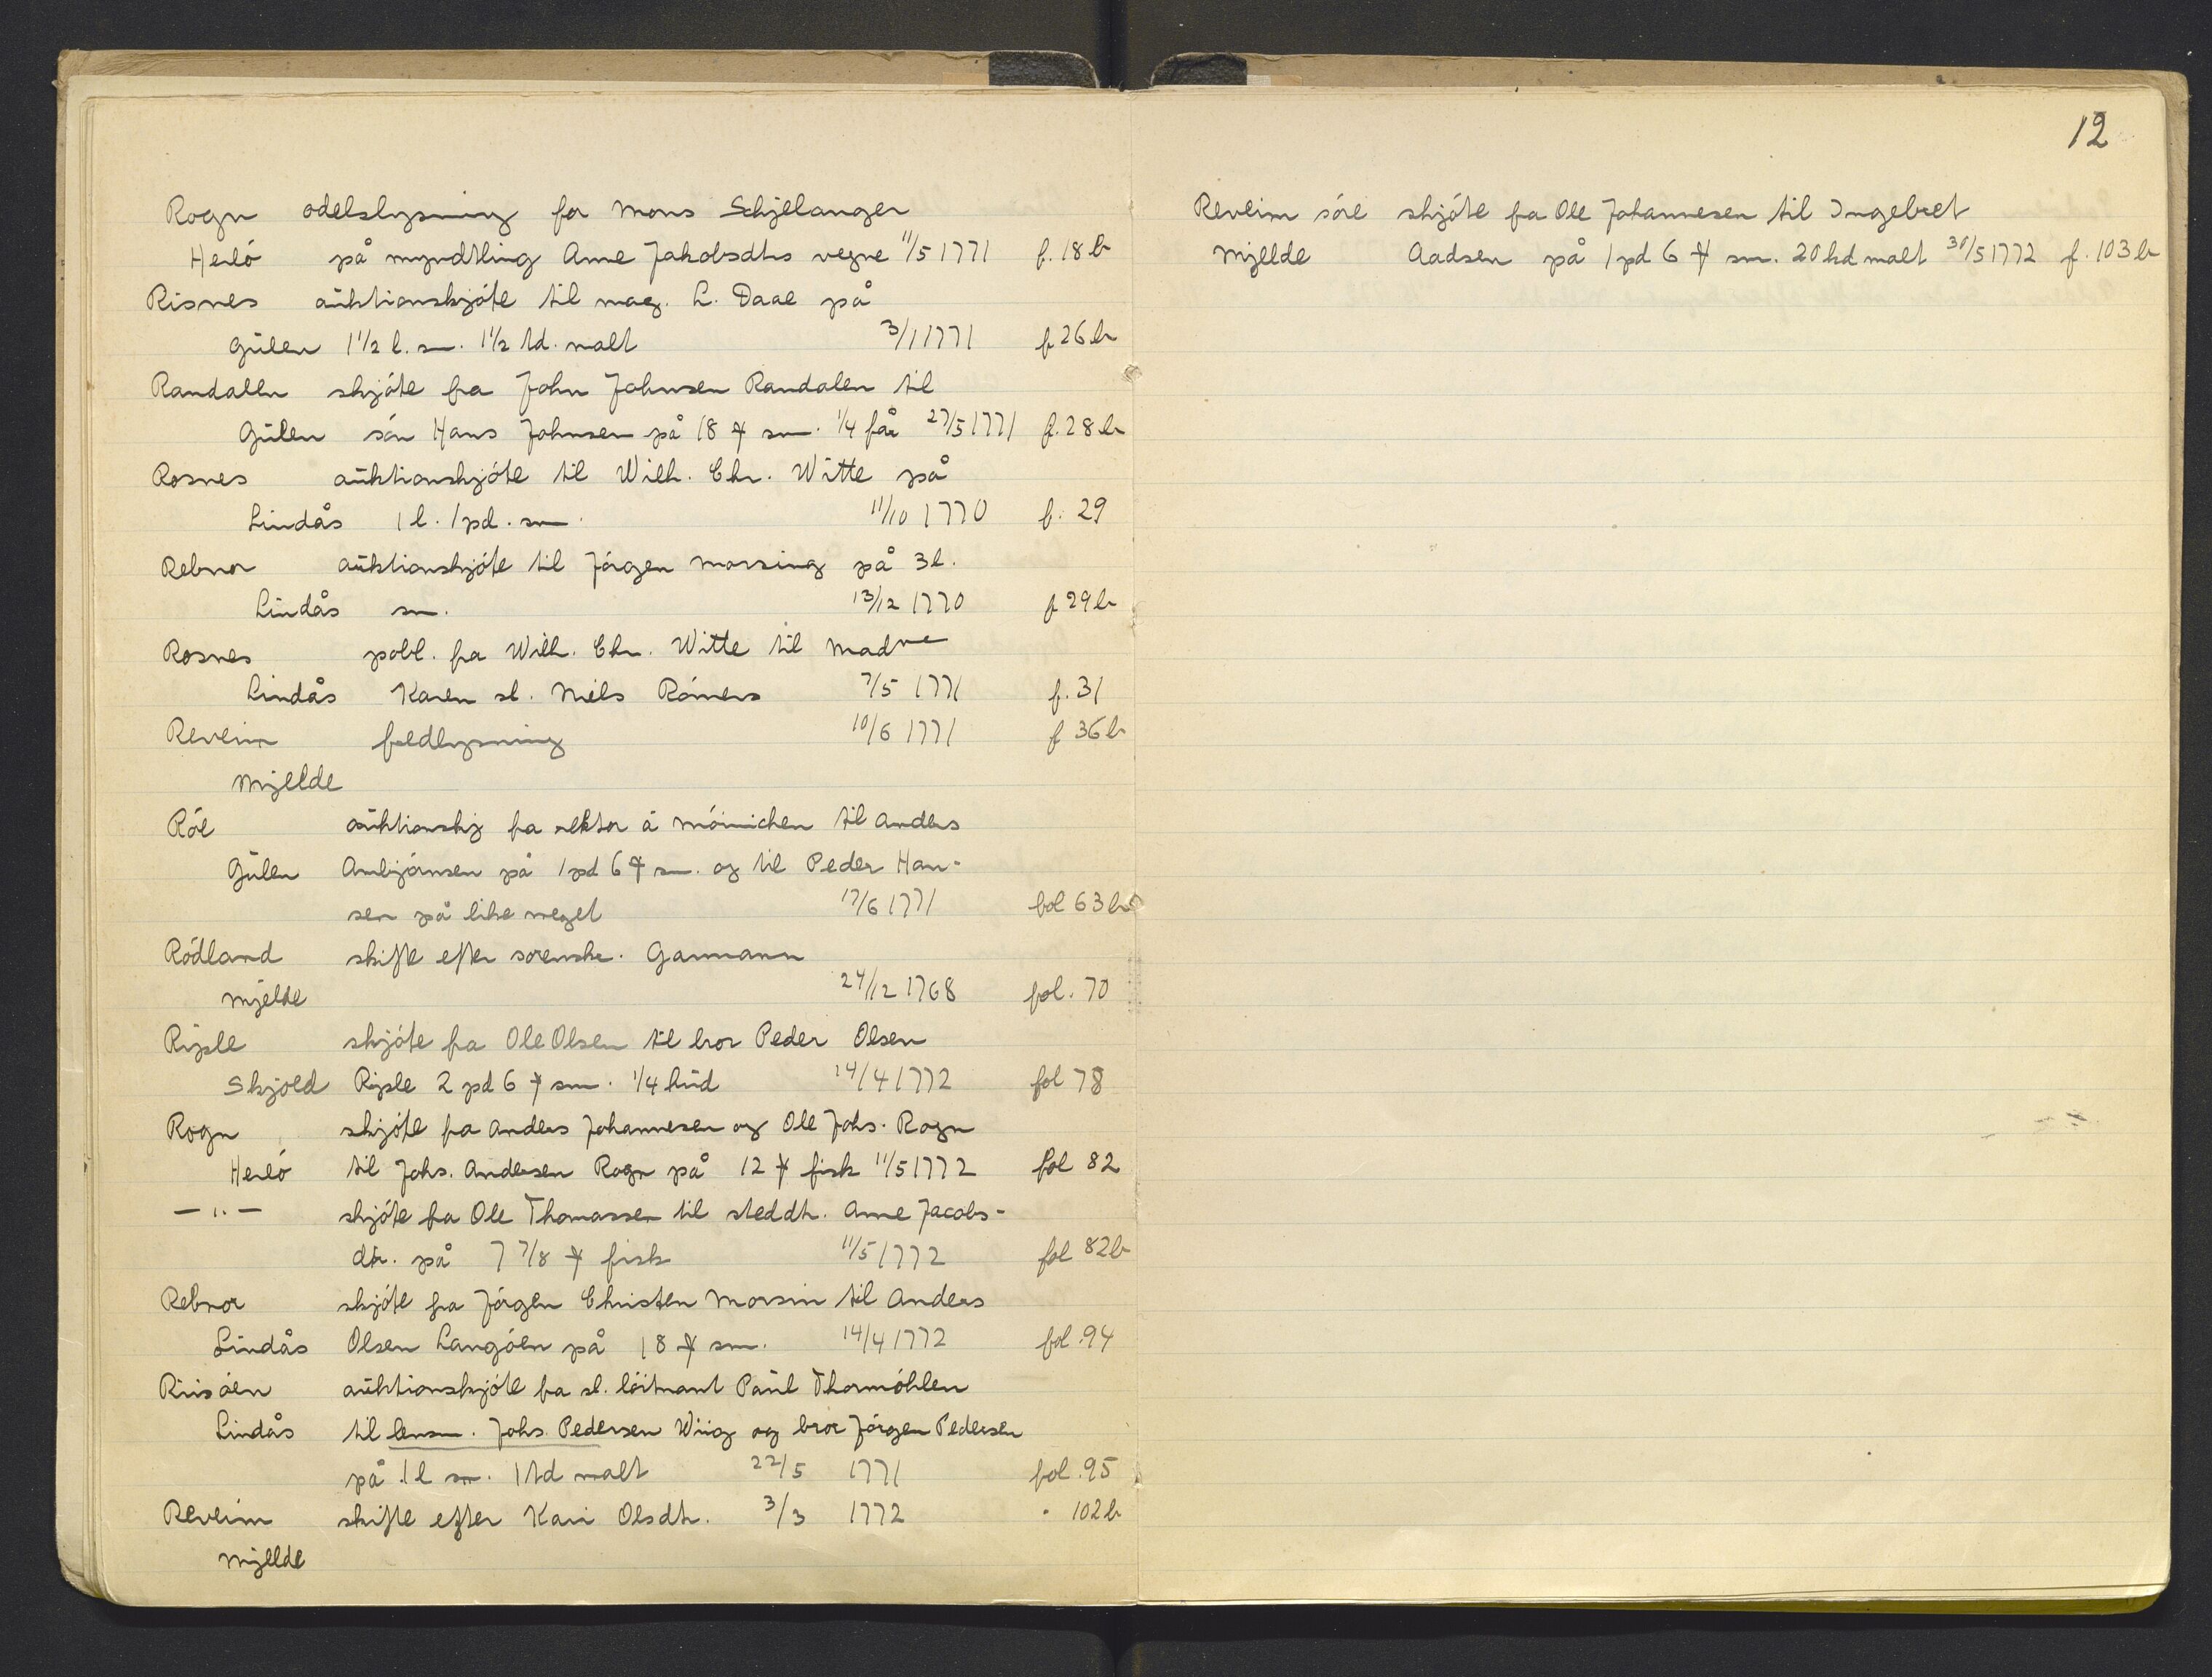 Rogn odelslysning for Mons Schjelanger
Herlö på myndtling Anne Jakobsdtrs vegne 11/5 1771 f. 18 b
Risnes auktionskjöte til mag. L. Daae på
Gulen 1 1/2 l. sm. 1 1/2 td. malt 3/1 1771 f 26 b
Randalen skjöte fra John Johnsen Randalen til
Gulen sön Hans Johnsen på 18 ℔ sm. 1/4 får 27/5 1771 f. 28 b
Rosnes auktionskjöte til Wilh. Chr. Witte på
Lindås 1 l. 1 pd. sm. 11/10 1770 f. 29
Rebnor auktionskjöte til Jörgen Morsing på 3 l.
Lindås sm. 13/12 1770 f 29 b
Rosnes pobl. fra Wilh. Chr. Witte til Madme
Lindås Karen sl. Niels Römers 7/5 1771 f. 31
Reveim fredlysning 10/6 1771 f 36 b
Mjelde
Röe auktionskj fra rektor å Möinichen til Anders
Gulen Anbjörnsen på 1 pd 6 ℔ sm. og til Peder Han-
sen på like meget 17/6 1771 fol 63 b
Rödland skifte efter sorenskr. Garmann
Mjelde 24/12 1768 fol. 70
Risple skjöte fra Ole Olsen til bror Peder Olsen
Skjold Risple 2 pd 6 ℔ sm. 1/4 hud 14/4 1772 fol 78
Rogn skjöte fra Anders Johannesen og Ole Johs. Rogn
Herlö til Johs. Andersen Rogn på 12 ℔ fisk 11/5 1772 fol 82
— " — skjöte fra Ole Thomassen til steddtr. Anne Jacobs-
dtr. på 7 7/8 ℔ fisk 11/5 1772 fol 82 b
Rebnor skjöte fra Jörgen Christen Morsin til Anders
Lindås Olsen Langöen på 18 ℔ sm. 14/4 1772 fol. 94
Riisöen auktionskjöte fra sl. löitnant Paul Thormöhlen
Lindås til lensm. Johs. Pedersen Wiig og bror Jörgen Pedersen
på 1 l sm. 1 td malt 22/5 1771 fol. 95
Reveim skifte efter Kari Olsdtr. 3/3 1772 " 102 b
Mjelde
12
Reveim söre skjöte fra Ole Johannesen til Ingebret
Mjelde Aadsen på 1 pd 6 ℔ sm. 20 kd malt 30/5 1772 f. 103 b